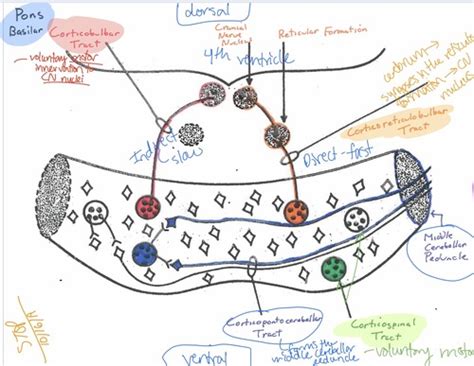 Pons
Basilar
Corticobulbar
Tract
- voluntary motor
innervation to
CN nuclei
dorsal
Cranial
Nerve
Nuclei
Reticular Formation
4th ventricle
cerebrum →
synapses in the reticular
formation → CN
nuclei
Corticoreticulobulbar
Tract
Indirect
slow
Direct-fast
Middle
Cerebellar
Peduncle
Corticopontocerebellar
Tract
forms the
middle cerebellar
peduncle
Corticospinal
Tract
- voluntary motor
ventral